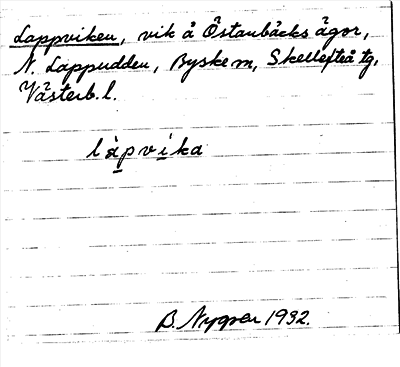 Lappviken, vik å Östanbäcks ägor,
N. Lappudden, Byske m, Skellefteå tg,
Västerb. l.
làpvika
B. Nygren 1932.